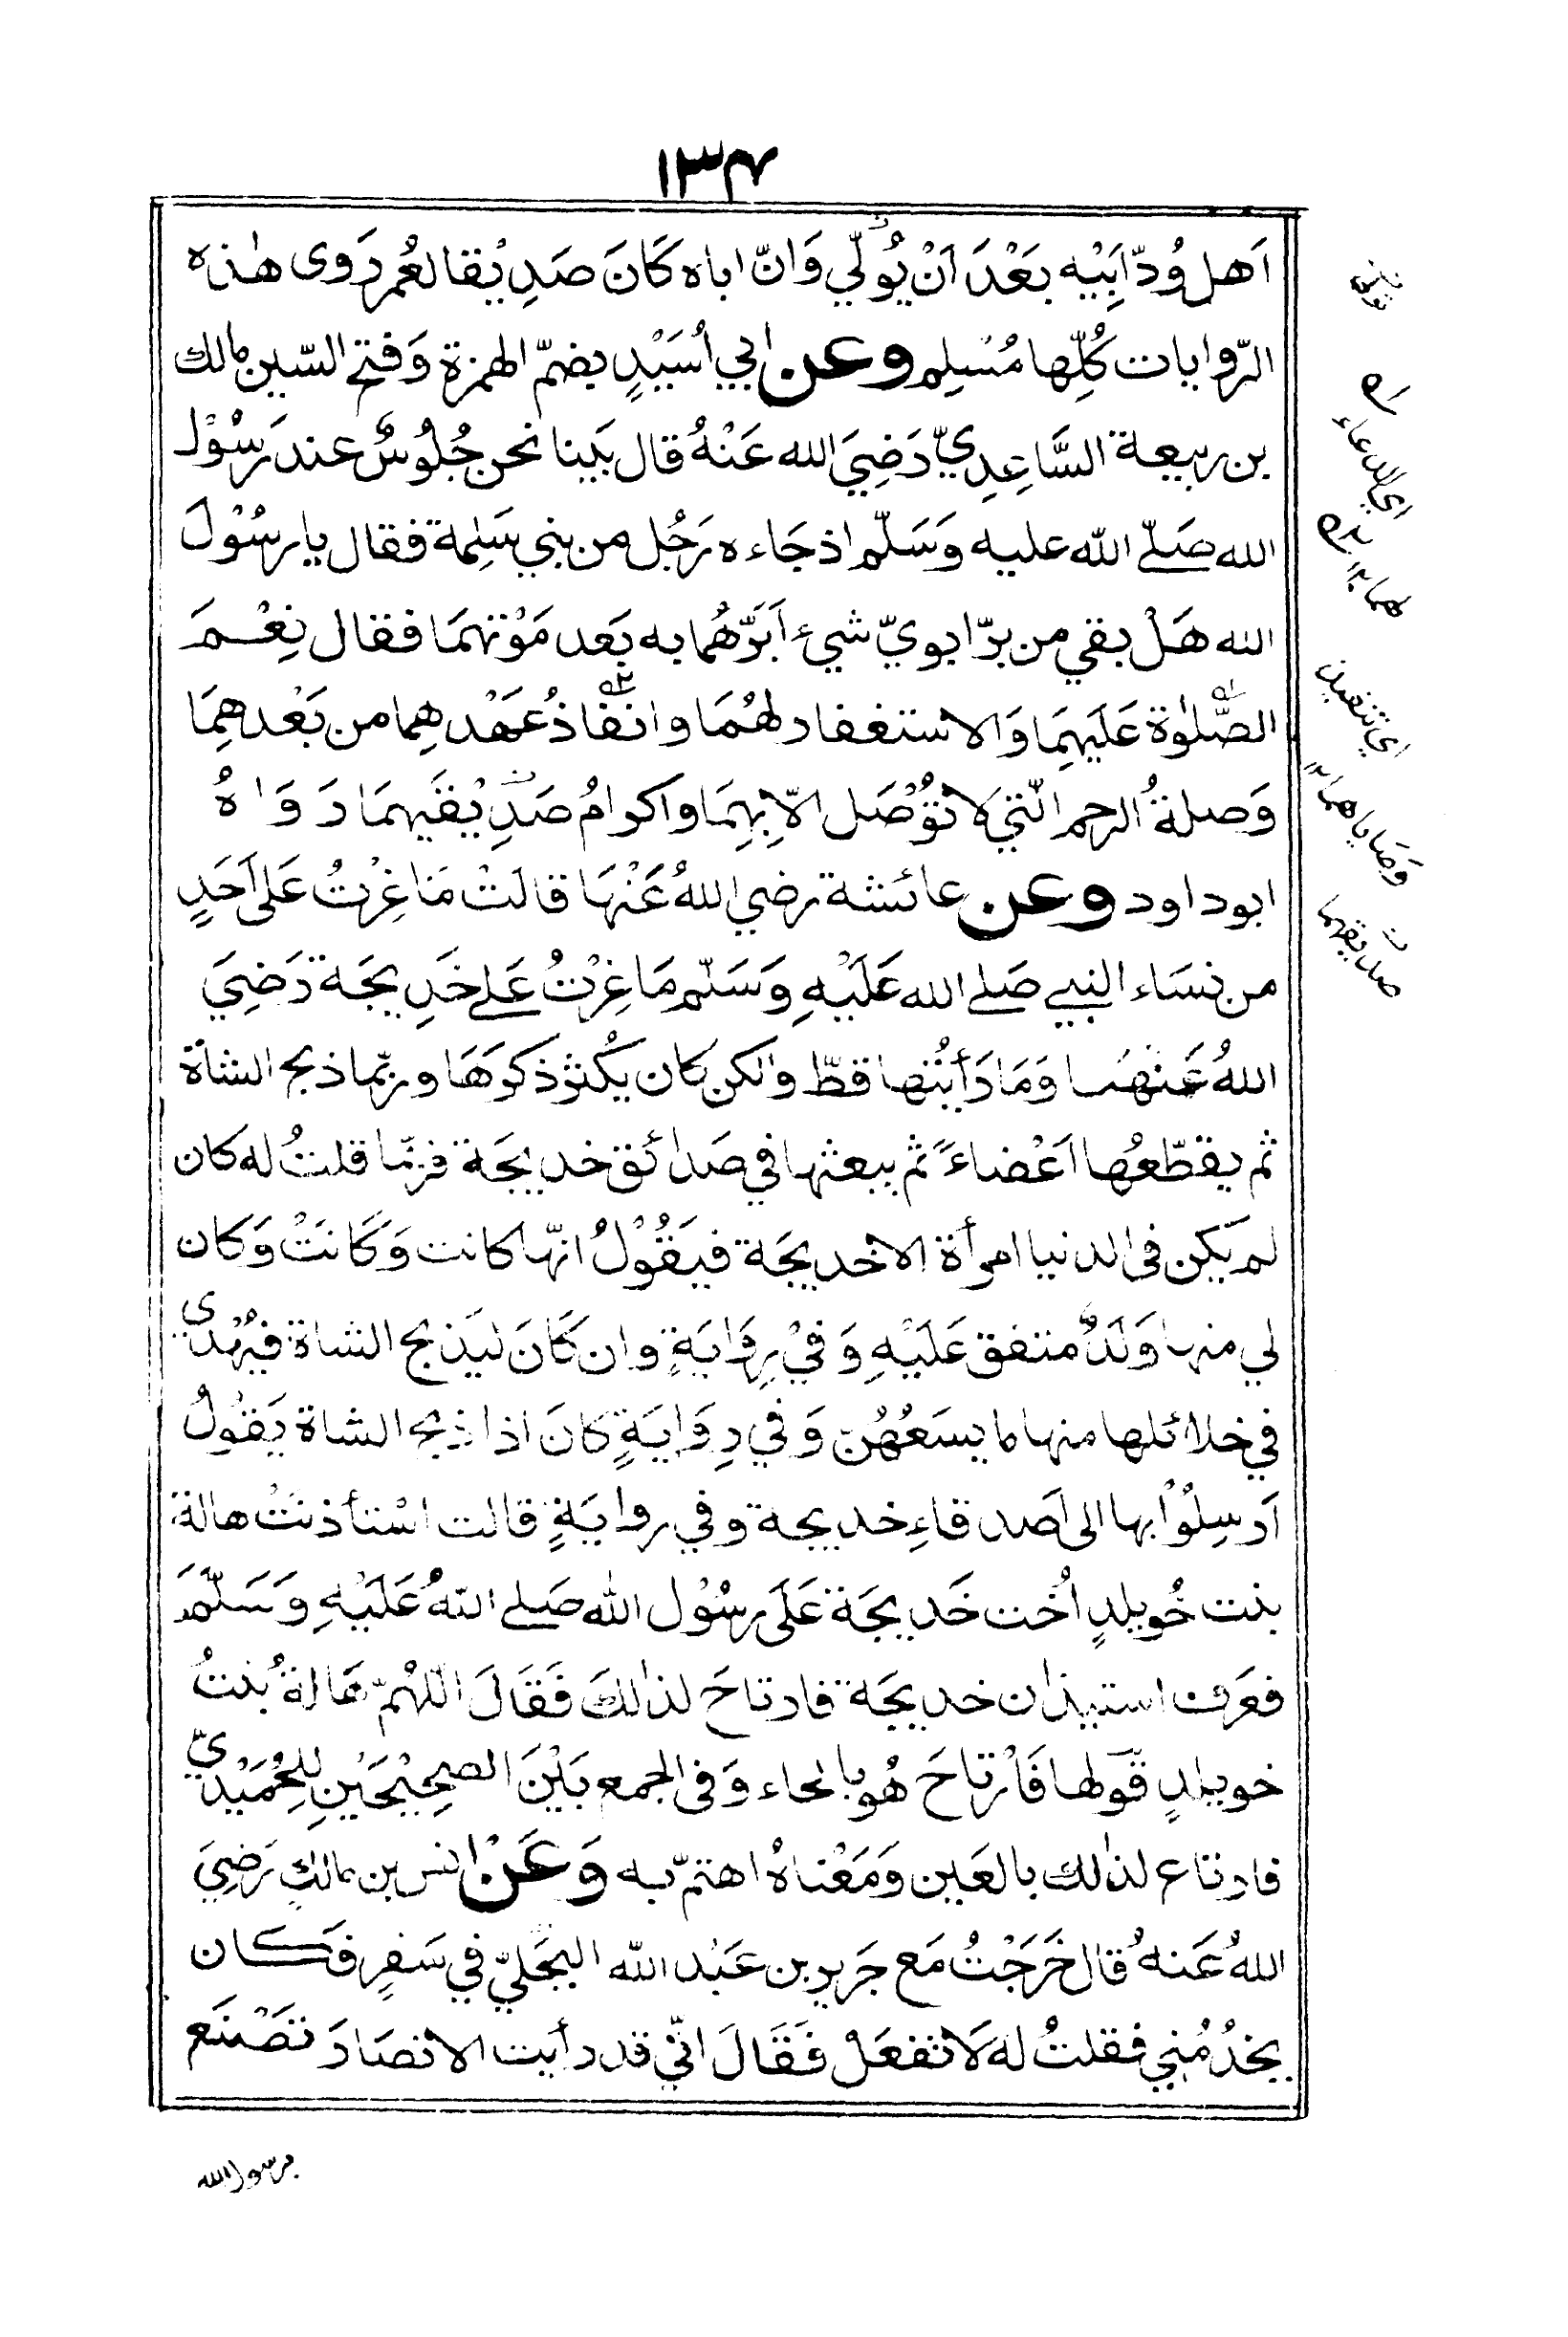 ١٣٤
اَهل وُدّ اَبِيْه بَعْدَ اَنْ يُوَلّي وَانّ اباه كَانَ صَدِيْقا لعُمر رَوى هٰذه
الرّوايات كُلّها مُسْلِم وعن ابي اُسَيْدٍ بضمّ الهمزة وَفتح السّين مالك
بن ربيعة السَّاعِدِيّ رَضِيَ الله عَنْهُ قال بَينا نحن جُلُوْسٌ عند رَسُوْل
الله صَلّے الله عليه وَسَلّم اذ جَاءه رَجُل من بني سَلِمة فقال يا رسُوْلَ
الله هَلْ بقي من برّ ابويّ شيء اَبَرّهُما به بَعد مَوْتهمَا فقال نِعْـمَ
الصَّلٰوة عَلَيهِمَا وَالاستغفار لهُمَا وانفَاذُ عَهْدهِما من بَعْدهِمَا
وَصلةُ الرحم الّتي لا تُوْصَل الاّ بِهِمَا واكرامُ صَدِيْقَيهمَا رَوَاهُ
ابوداود وعن عائشة رضي اللهُ عَنْهَا قالَتْ مَا غِرْتُ عَلى اَحَدٍ
من نِسَاء النبيے صَلے الله عَلَيْهِ وَسَلّم مَا غِرْتُ عَلے خَدِيجَة رَضِيَ
اللهُ عَنْهَـا وَمَا رَأيْتُها قطّ ولكن كان يُكْثر ذكرَهَا وربّما ذبح الشاة
ثم يقطّعُها اَعْضاءً ثم يبعثها في صَدائق خديجَة فربّما قلتُ له كان
لم يَكن فى الدنيا امرأة الا خديجَة فيَقُوْلُ انّها كانت وَكَانَتْ وَكان
لي منها وَلَدٌ متفق عَلَيْهِ وَفيْ رِوَايَةٍ وان كَانَ ليَذبح الشاة فيُهْدي
في خلائلها منها ما يسَعُهُنّ وَفي رِوَايَةٍ كانَ اذا ذبح الشاة يَقُولُ
اَرسِلُوْا بها الى اَصدقاءِ خديجة وفي روايَةٍ قالت اسْتأذنَتْ هالة
بنت خُويلدٍ اُخت خَديجَة عَلَى رسُوْل الله صَلے اللهُ عَلَيْهِ وَسَلَّمَ
فعَرف استيذان خديجَة فارتاحَ لذٰلكَ فَقَالَ اللهُمّ هَالةُ بْنتُ
خويلدٍ قولها فَارْتاحَ هُو بالحاء وَفى الجمع بَيْنَ الصحِيْحَيْنِ للحُمَيْديّ
فارتاع لذٰلك بالعَين وَمَعْناهُ اهتمّ به وَعَنْ انس بن مالكٍ رَضِيَ
اللهُ عَنهُ قال خَرَجْتُ مَع جَرير بن عَبْد الله البجَليّ في سَفرٍ فَكـان
يخدُمُني فقلتُ له لَا تفعَلْ فَقَالَ انّي قد رأيت الانصَارَ تصْنَع
اي الدعاء
لهما
اي تنفيذ
وَصَاياهما
صديقهما
برسول الله